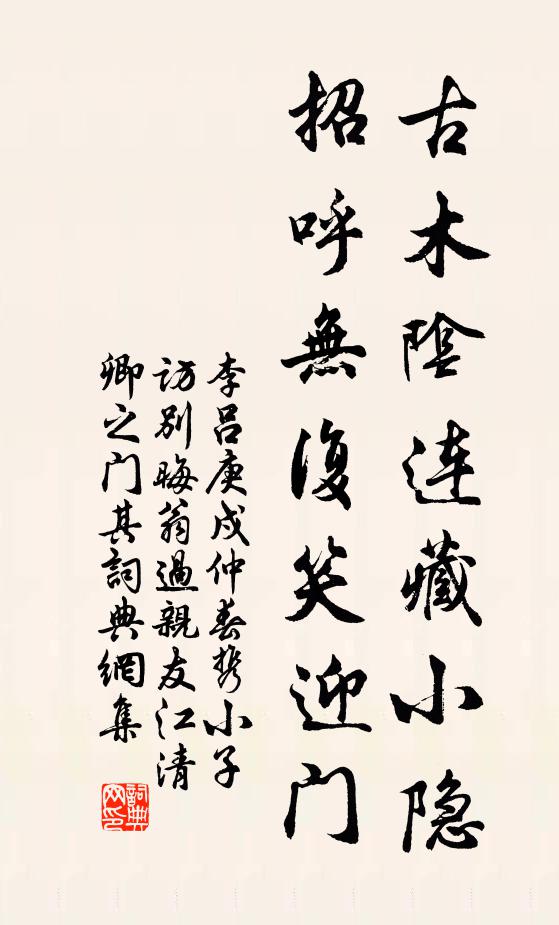 古木陰连藏小隐
招呼無復笑迎门
李吕庚戌仲春携小子
访别晦翁過親友江清
卿之门其詞典網集
詞典网印